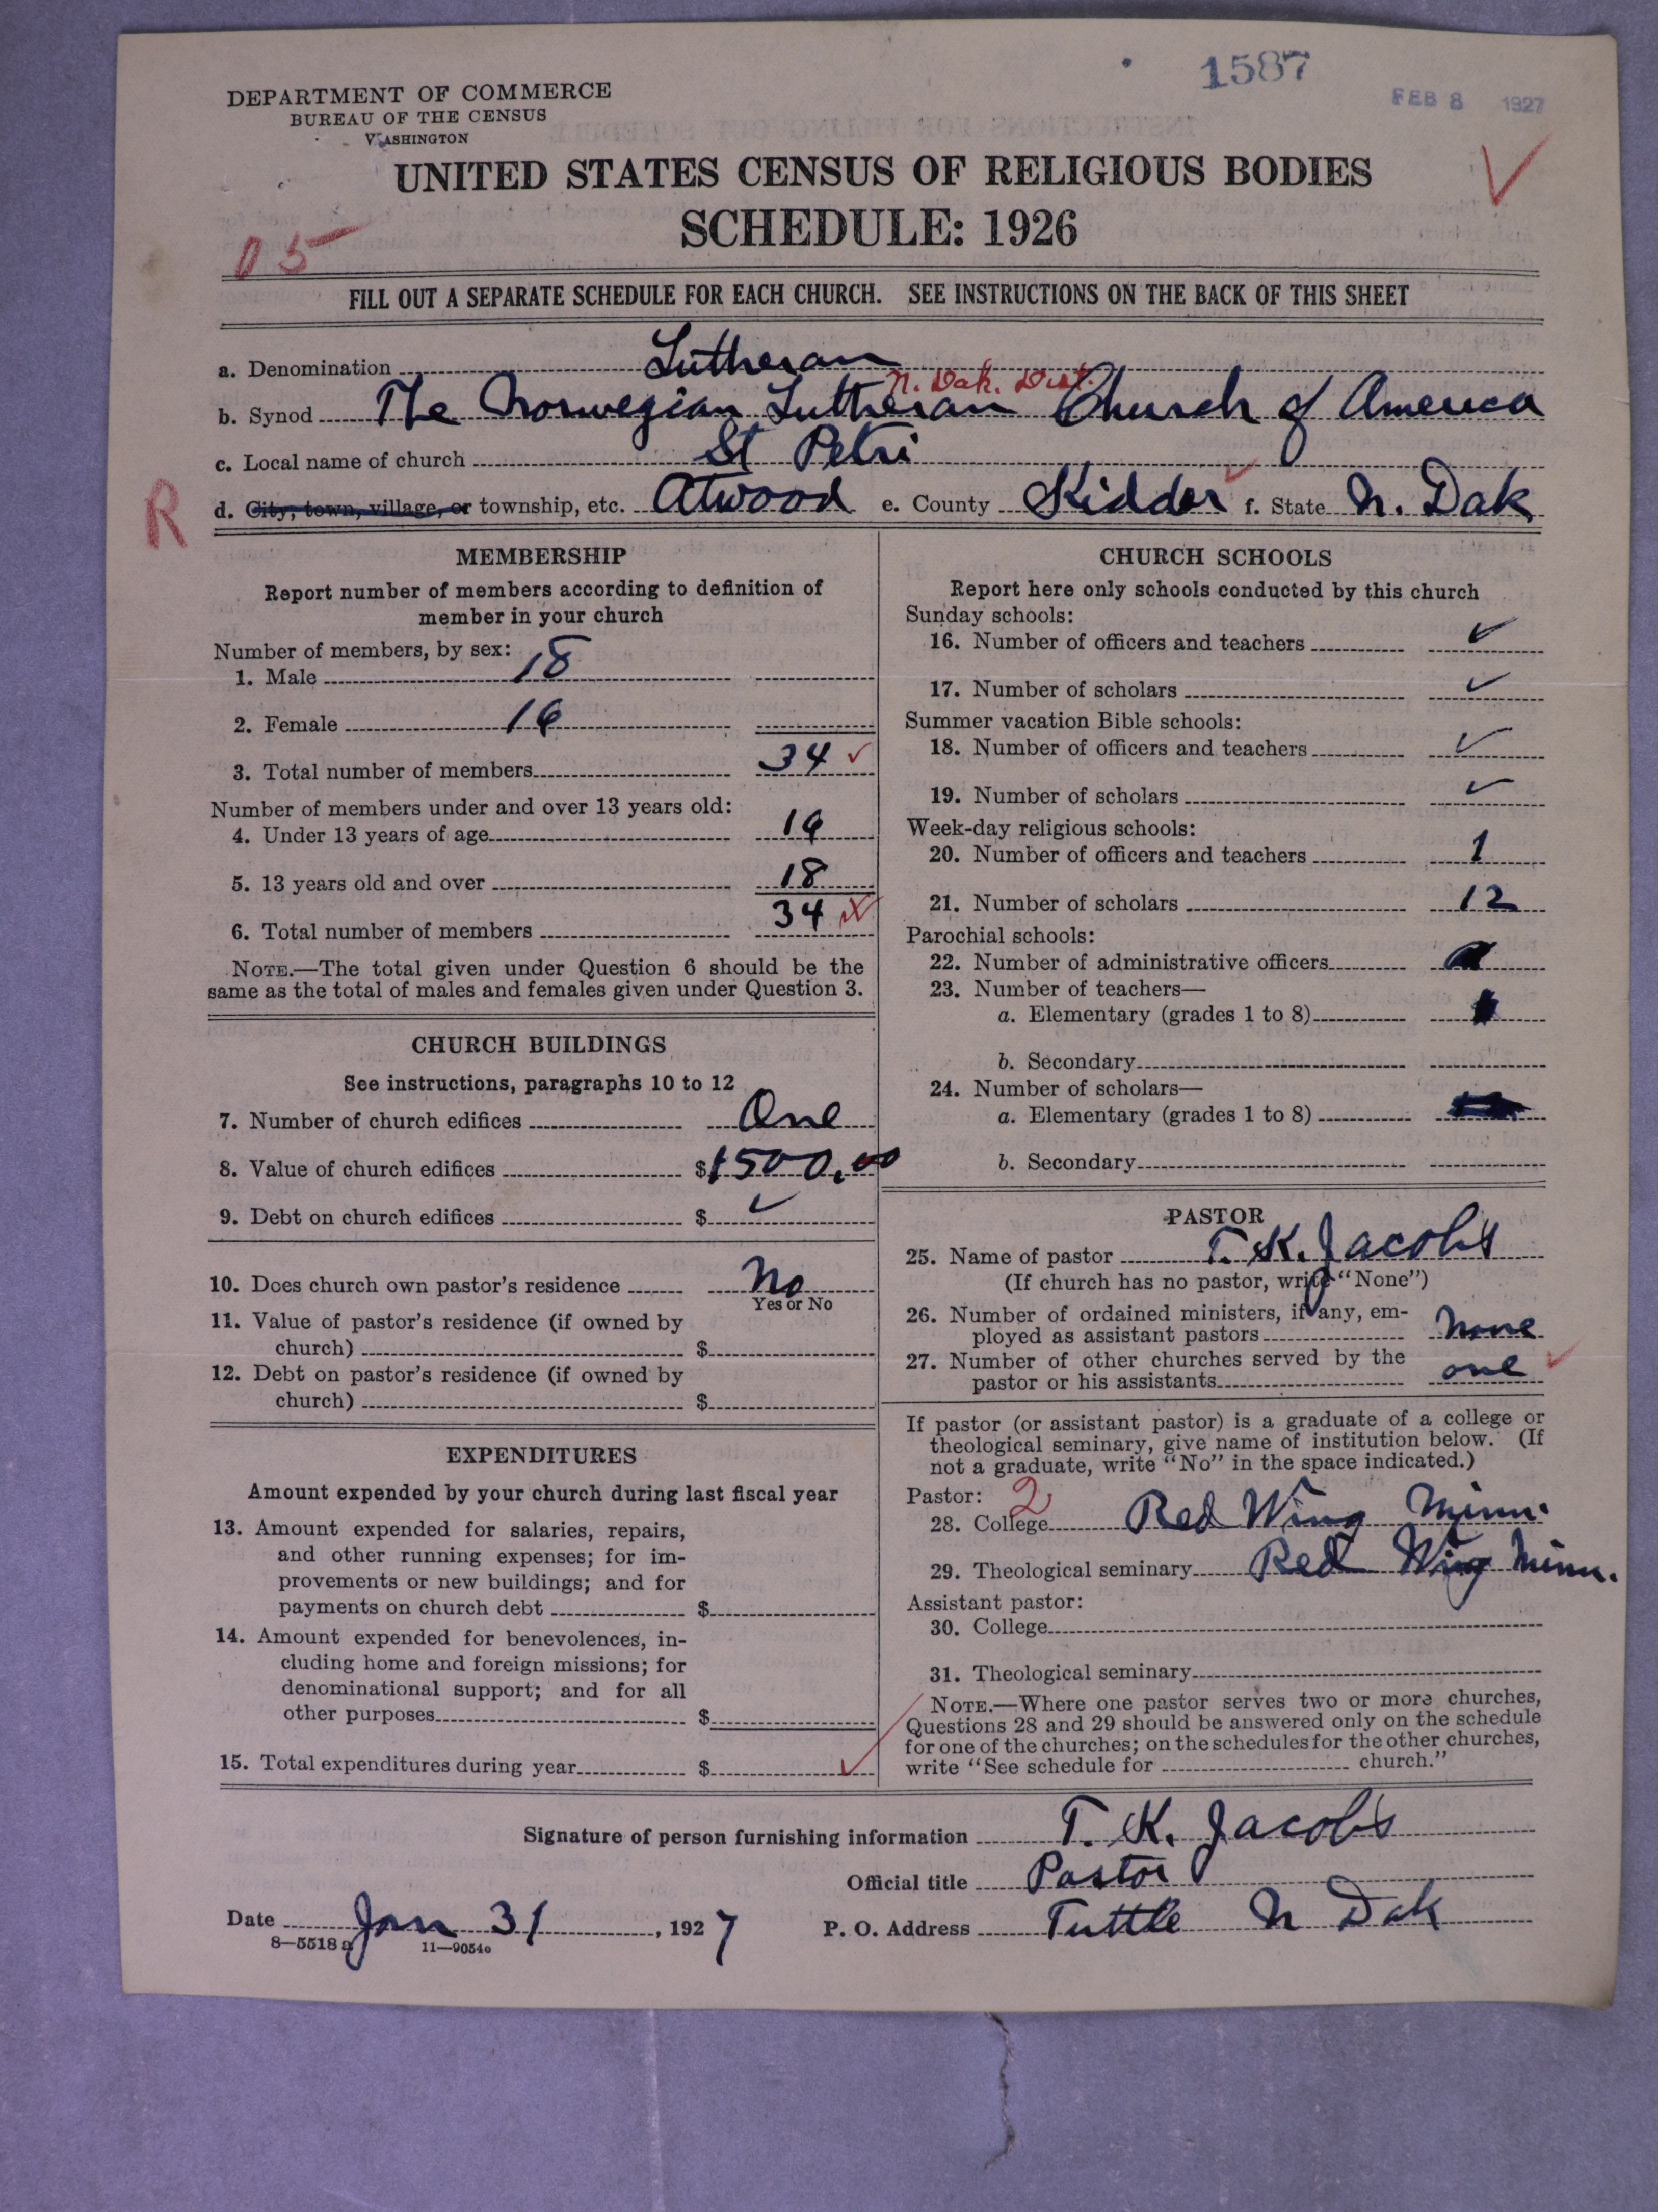 1587
FEB 8 1927
DEPARTMENT OF COMMERCE
BUREAU OF THE CENSUS
WASHINGTON
UNITED STATES CENSUS OF RELIGIOUS BODIES
SCHEDULE: 1926
05
FILL OUT A SEPARATE SCHEDULE FOR EACH CHURCH. SEE INSTRUCTIONS ON THE BACK OF THIS SHEET
a. Denomination Lutheran
N. Dak. Dist.
b. Synod The Norwegian Lutheran Church of America
c. Local name of church St Petri
R
d. City, town, village, or township, etc. Atwood e. County Kidder f. State N. Dak
MEMBERSHIP
Report number of members according to definition of
member in your church
Number of members, by sex:
1. Male 18
2. Female 16
3. Total number of members 34
Number of members under and over 13 years old:
4. Under 13 years of age 16
5. 13 years old and over 18
6. Total number of members 34
NOTE.—The total given under Question 6 should be the
same as the total of males and females given under Question 3.
CHURCH BUILDINGS
See instructions, paragraphs 10 to 12
7. Number of church edifices One
8. Value of church edifices $1500.00
9. Debt on church edifices $
10. Does church own pastor's residence No
Yes or No
11. Value of pastor's residence (if owned by
church) $
12. Debt on pastor's residence (if owned by
church) $
EXPENDITURES
Amount expended by your church during last fiscal year
13. Amount expended for salaries, repairs,
and other running expenses; for im-
provements or new buildings; and for
payments on church debt $
14. Amount expended for benevolences, in-
cluding home and foreign missions; for
denominational support; and for all
other purposes $
15. Total expenditures during year $
CHURCH SCHOOLS
Report here only schools conducted by this church
Sunday schools:
16. Number of officers and teachers ✓
17. Number of scholars ✓
Summer vacation Bible schools:
18. Number of officers and teachers ✓
19. Number of scholars ✓
Week-day religious schools:
20. Number of officers and teachers 1
21. Number of scholars 12
Parochial schools:
22. Number of administrative officers
23. Number of teachers—
a. Elementary (grades 1 to 8)
b. Secondary
24. Number of scholars—
a. Elementary (grades 1 to 8)
b. Secondary
PASTOR
25. Name of pastor T. K. Jacobs
(If church has no pastor, write "None")
26. Number of ordained ministers, if any, em-
ployed as assistant pastors None
27. Number of other churches served by the
pastor or his assistants one
If pastor (or assistant pastor) is a graduate of a college or
theological seminary, give name of institution below. (If
not a graduate, write "No" in the space indicated.)
Pastor: 2
28. College Red Wing Minn.
29. Theological seminary Red Wing Minn.
Assistant pastor:
30. College
31. Theological seminary
NOTE.—Where one pastor serves two or more churches,
Questions 28 and 29 should be answered only on the schedule
for one of the churches; on the schedules for the other churches,
write "See schedule for church."
Signature of person furnishing information T. K. Jacobs
Official title Pastor
Date Jan 31, 1927 P. O. Address Tuttle N Dak
8—5518 a 11—9054a